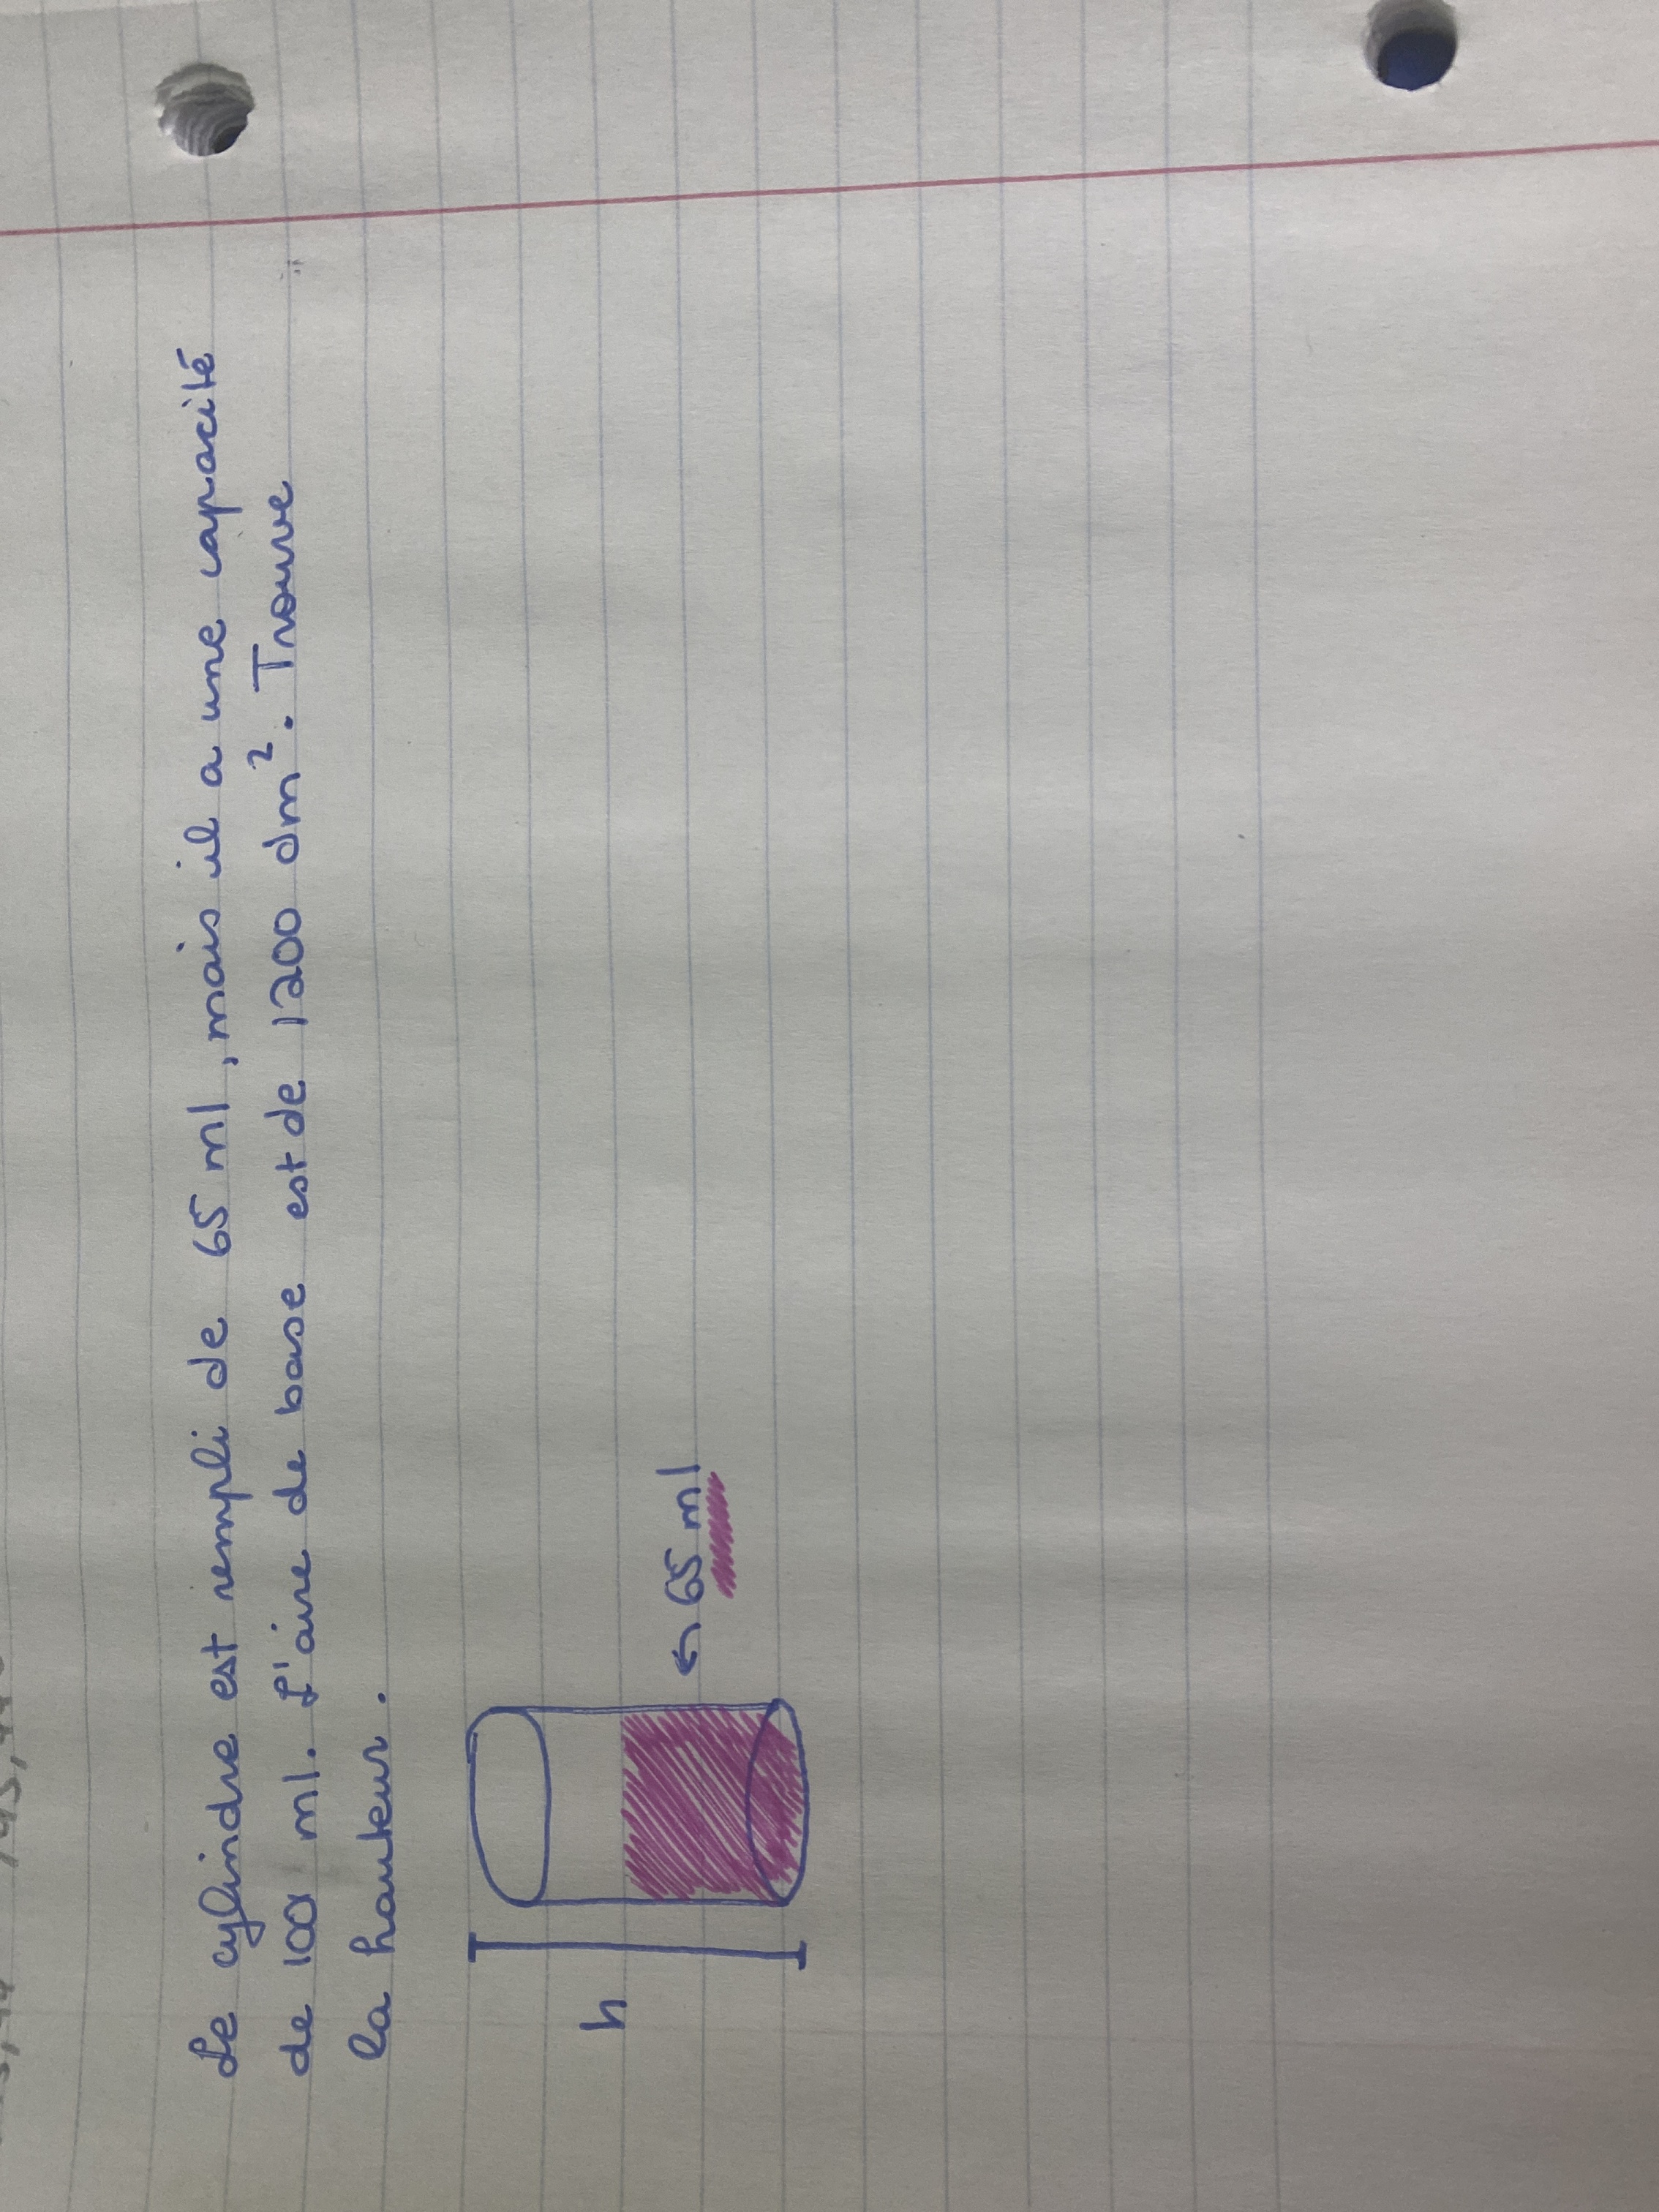 Le cylindre est rempli de 65 ml, mais il a une capacité
de 100 ml. L'aire de base est de 1200 dm². Trouve
la hauteur.
h
← 65 ml